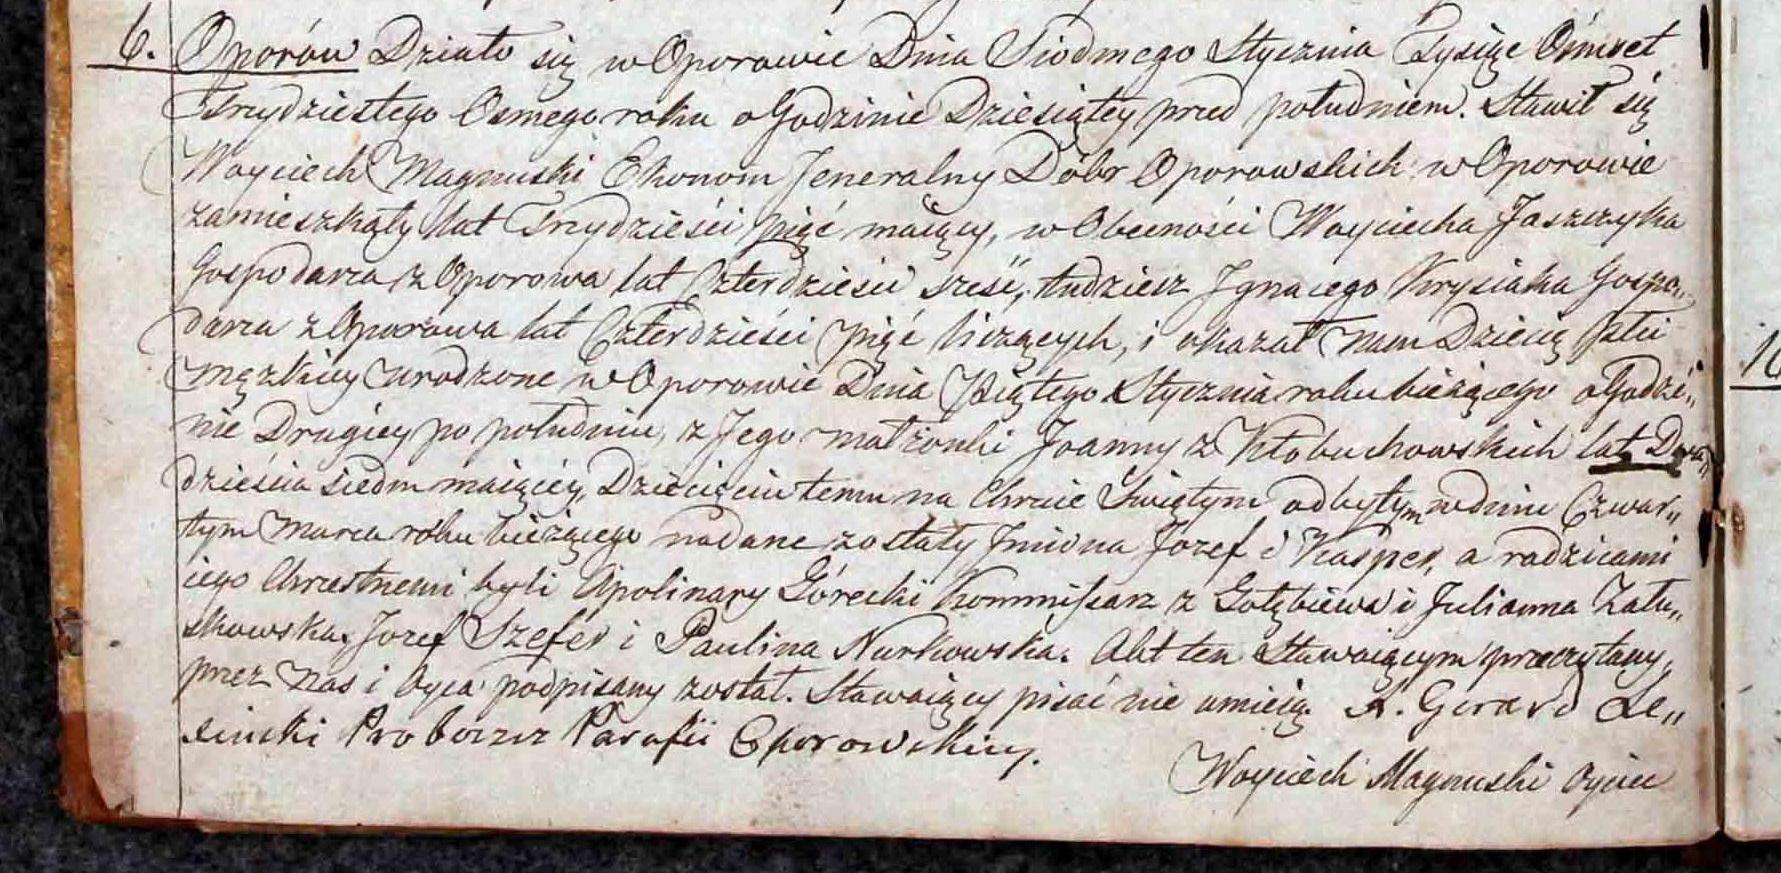 6. Oporów Działo się w Oporowie Dnia Siodmego Stycznia Tysiąc Ośmset
Trzydziestego Osmego roku o Godzinie Dziesiątey przed południem. Stawił się
Woyciech Magnuski Ekonom Jeneralny Dóbr Oporowskich w Oporowie
zamieszkały lat Trzydzieści pięć maiący, w Obecności Woyciecha Jaszczyka
Gospodarza z Oporowa lat Czterdzieści sześć, tudziesz Ignacego Krysiaka Gospo„
darza z Oporowa lat Czterdzieści pięć liczących, i okazał nam Dziecię płci
męzkiey urodzone w Oporowie Dnia Piątego Stycznia roku bieżącego o Godzi„
nie Drugiey po południu, z Jego małżonki Joanny z Kłobuchowskich lat Dwa„
dzieścia siedm maiącey, Dziecięciu temu na Chrcie Świętym odbytym w dniu Czwar„
tym Marca roku bieżącego nadane zostały Imiona Jozef i Kasper, a rodzicami
iego Chrzestnemi byli Apolinary Górecki Kommissarz z Gołębiewa i Julianna Zału„
skowska, Jozef Szefer i Paulina Nurkowska. Akt ten Stawaiącym przeczytany,
przez nas i Oyca podpisany został. Stawaiący pisać nie umieią X. Gerard Le„
siński Proboszcz Parafii Oporowskiey.
Woyciech Magnuski Oyciec
10